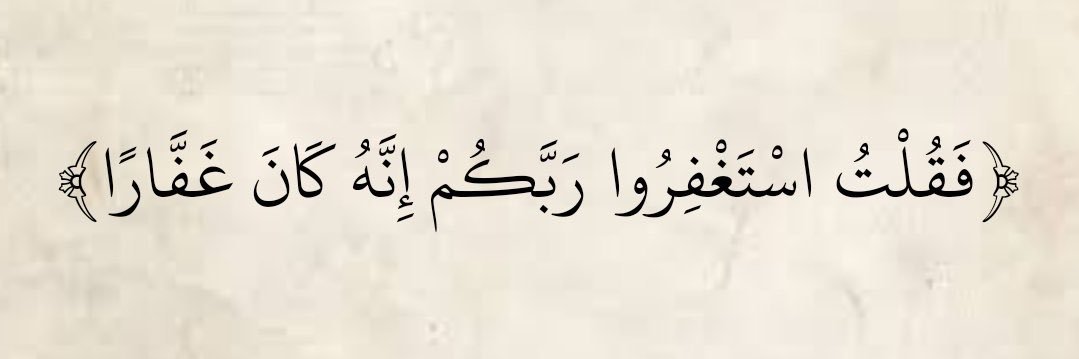 ﴿فَقُلْتُ اسْتَغْفِرُوا رَبَّكُمْ إِنَّهُ كَانَ غَفَّارًا﴾